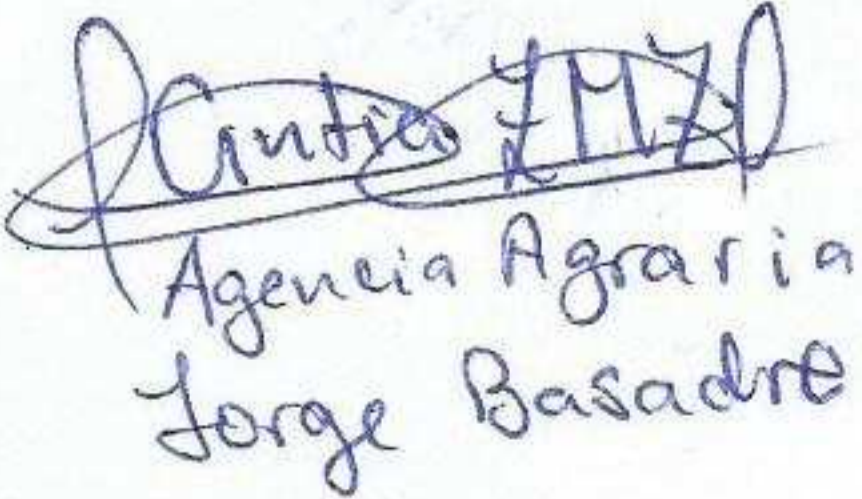 Cintia ZMZ
Agencia Agraria
Jorge Basadre